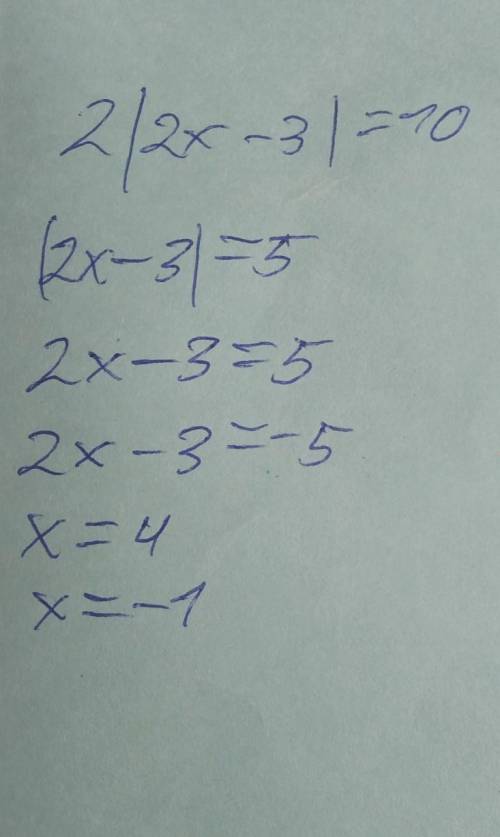 2|2x-3|=10
|2x-3|=5
2x-3=5
2x-3=-5
x=4
x=-1